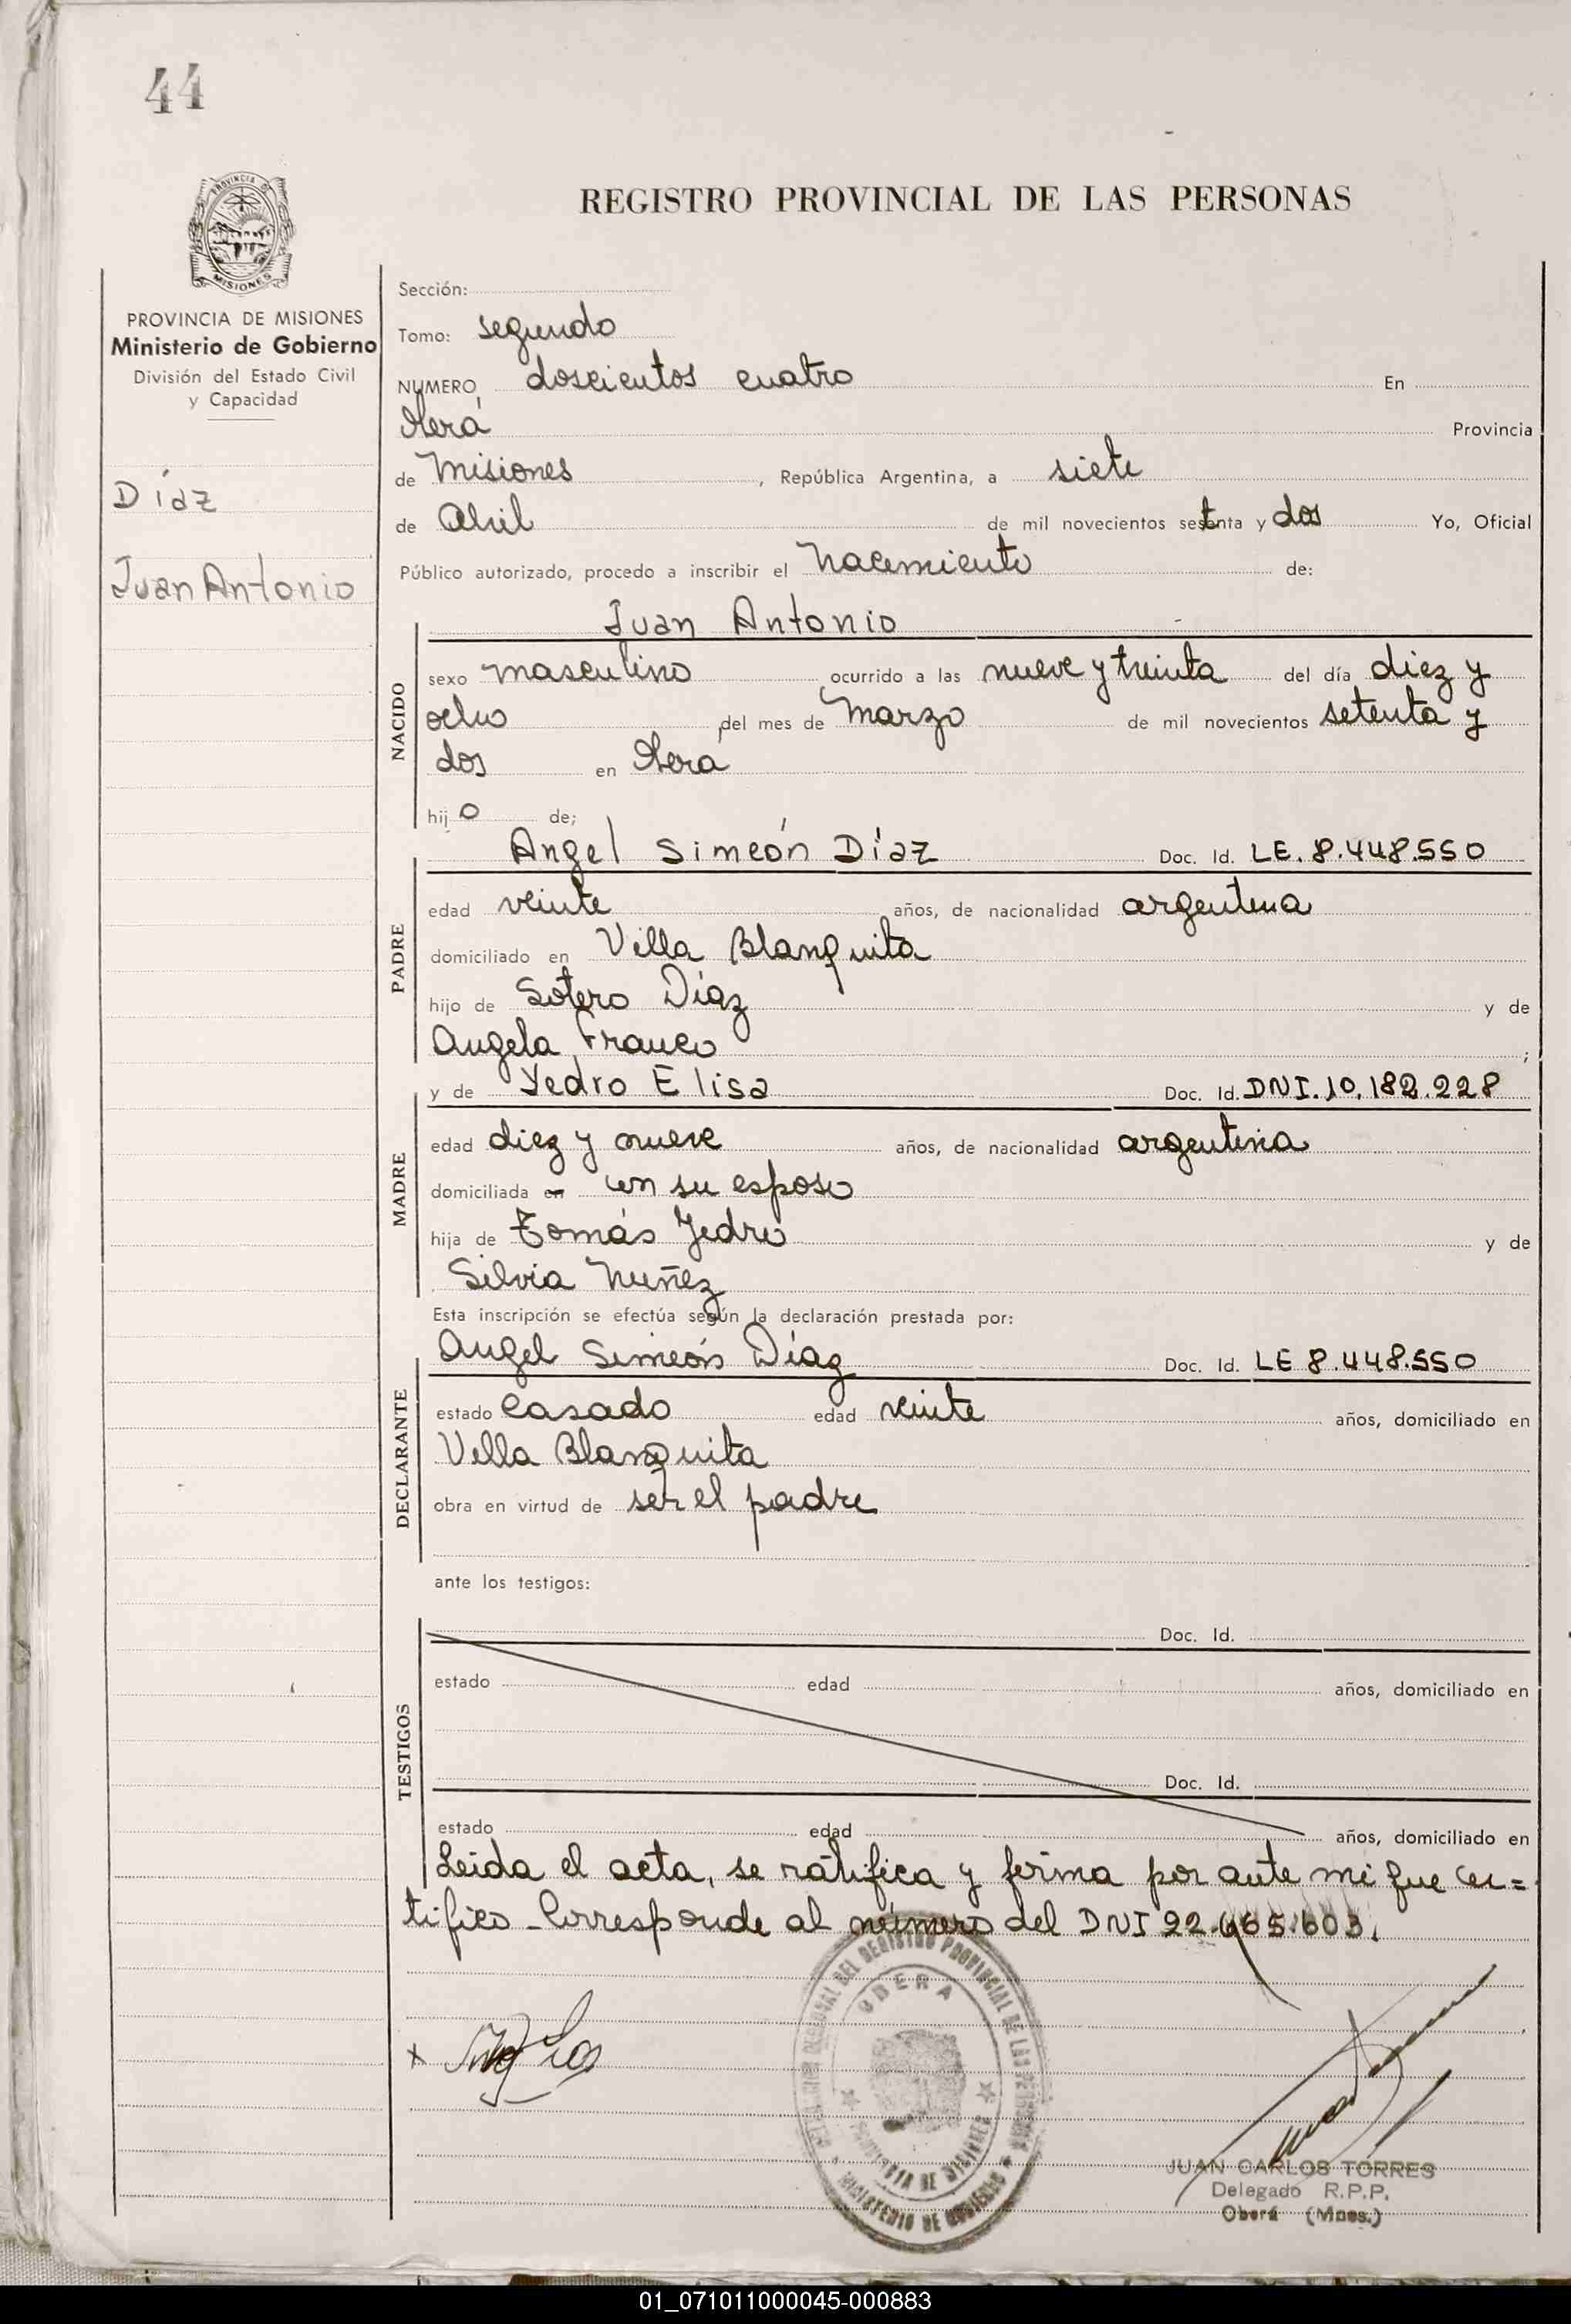 44
PROVINCIA DE
MISIONES
REGISTRO PROVINCIAL DE LAS PERSONAS
PROVINCIA DE MISIONES
Ministerio de Gobierno
División del Estado Civil
y Capacidad
Díaz
Juan Antonio
Sección:
Tomo: segundo
NUMERO, doscientos cuatro En
Oberá Provincia
de Misiones, República Argentina, a siete
de Abril de mil novecientos setenta y dos Yo, Oficial
Público autorizado, procedo a inscribir el Nacimiento de:
NACIDO
Juan Antonio
sexo masculino ocurrido a las nueve y treinta del día diez y
ocho del mes de Marzo de mil novecientos setenta y
dos en Oberá
hijo de;
PADRE
Angel Simeón Díaz Doc. Id. LE. 8.448.550
edad veinte años, de nacionalidad argentina
domiciliado en Villa Blanquita
hijo de Sotero Díaz y de
Angela Franco;
MADRE
y de Yedro Elisa Doc. Id. DNI. 10.182.228
edad diez y nueve años, de nacionalidad argentina
domiciliada en con su esposo
hija de Tomás Yedro y de
Silvia Nuñez
Esta inscripción se efectúa según la declaración prestada por:
DECLARANTE
Angel Simeón Díaz Doc. Id. LE 8.448.550
estado casado edad veinte años, domiciliado en
Villa Blanquita
obra en virtud de ser el padre
ante los testigos:
TESTIGOS
Doc. Id.
estado edad años, domiciliado en
Doc. Id.
estado edad años, domiciliado en
Leida el acta, se ratifica y firma por ante mi que cer=
tifico - Corresponde al número del DNI 22.665.603.
DEL REGISTRO PROVINCIAL DE LAS PERSONAS
OBERA
PROVINCIA DE MISIONES
MINISTERIO DE GOBIERNO
JUAN CARLOS TORRES
Delegado R.P.P.
Oberá (Mnes.)
01_071011000045-000883